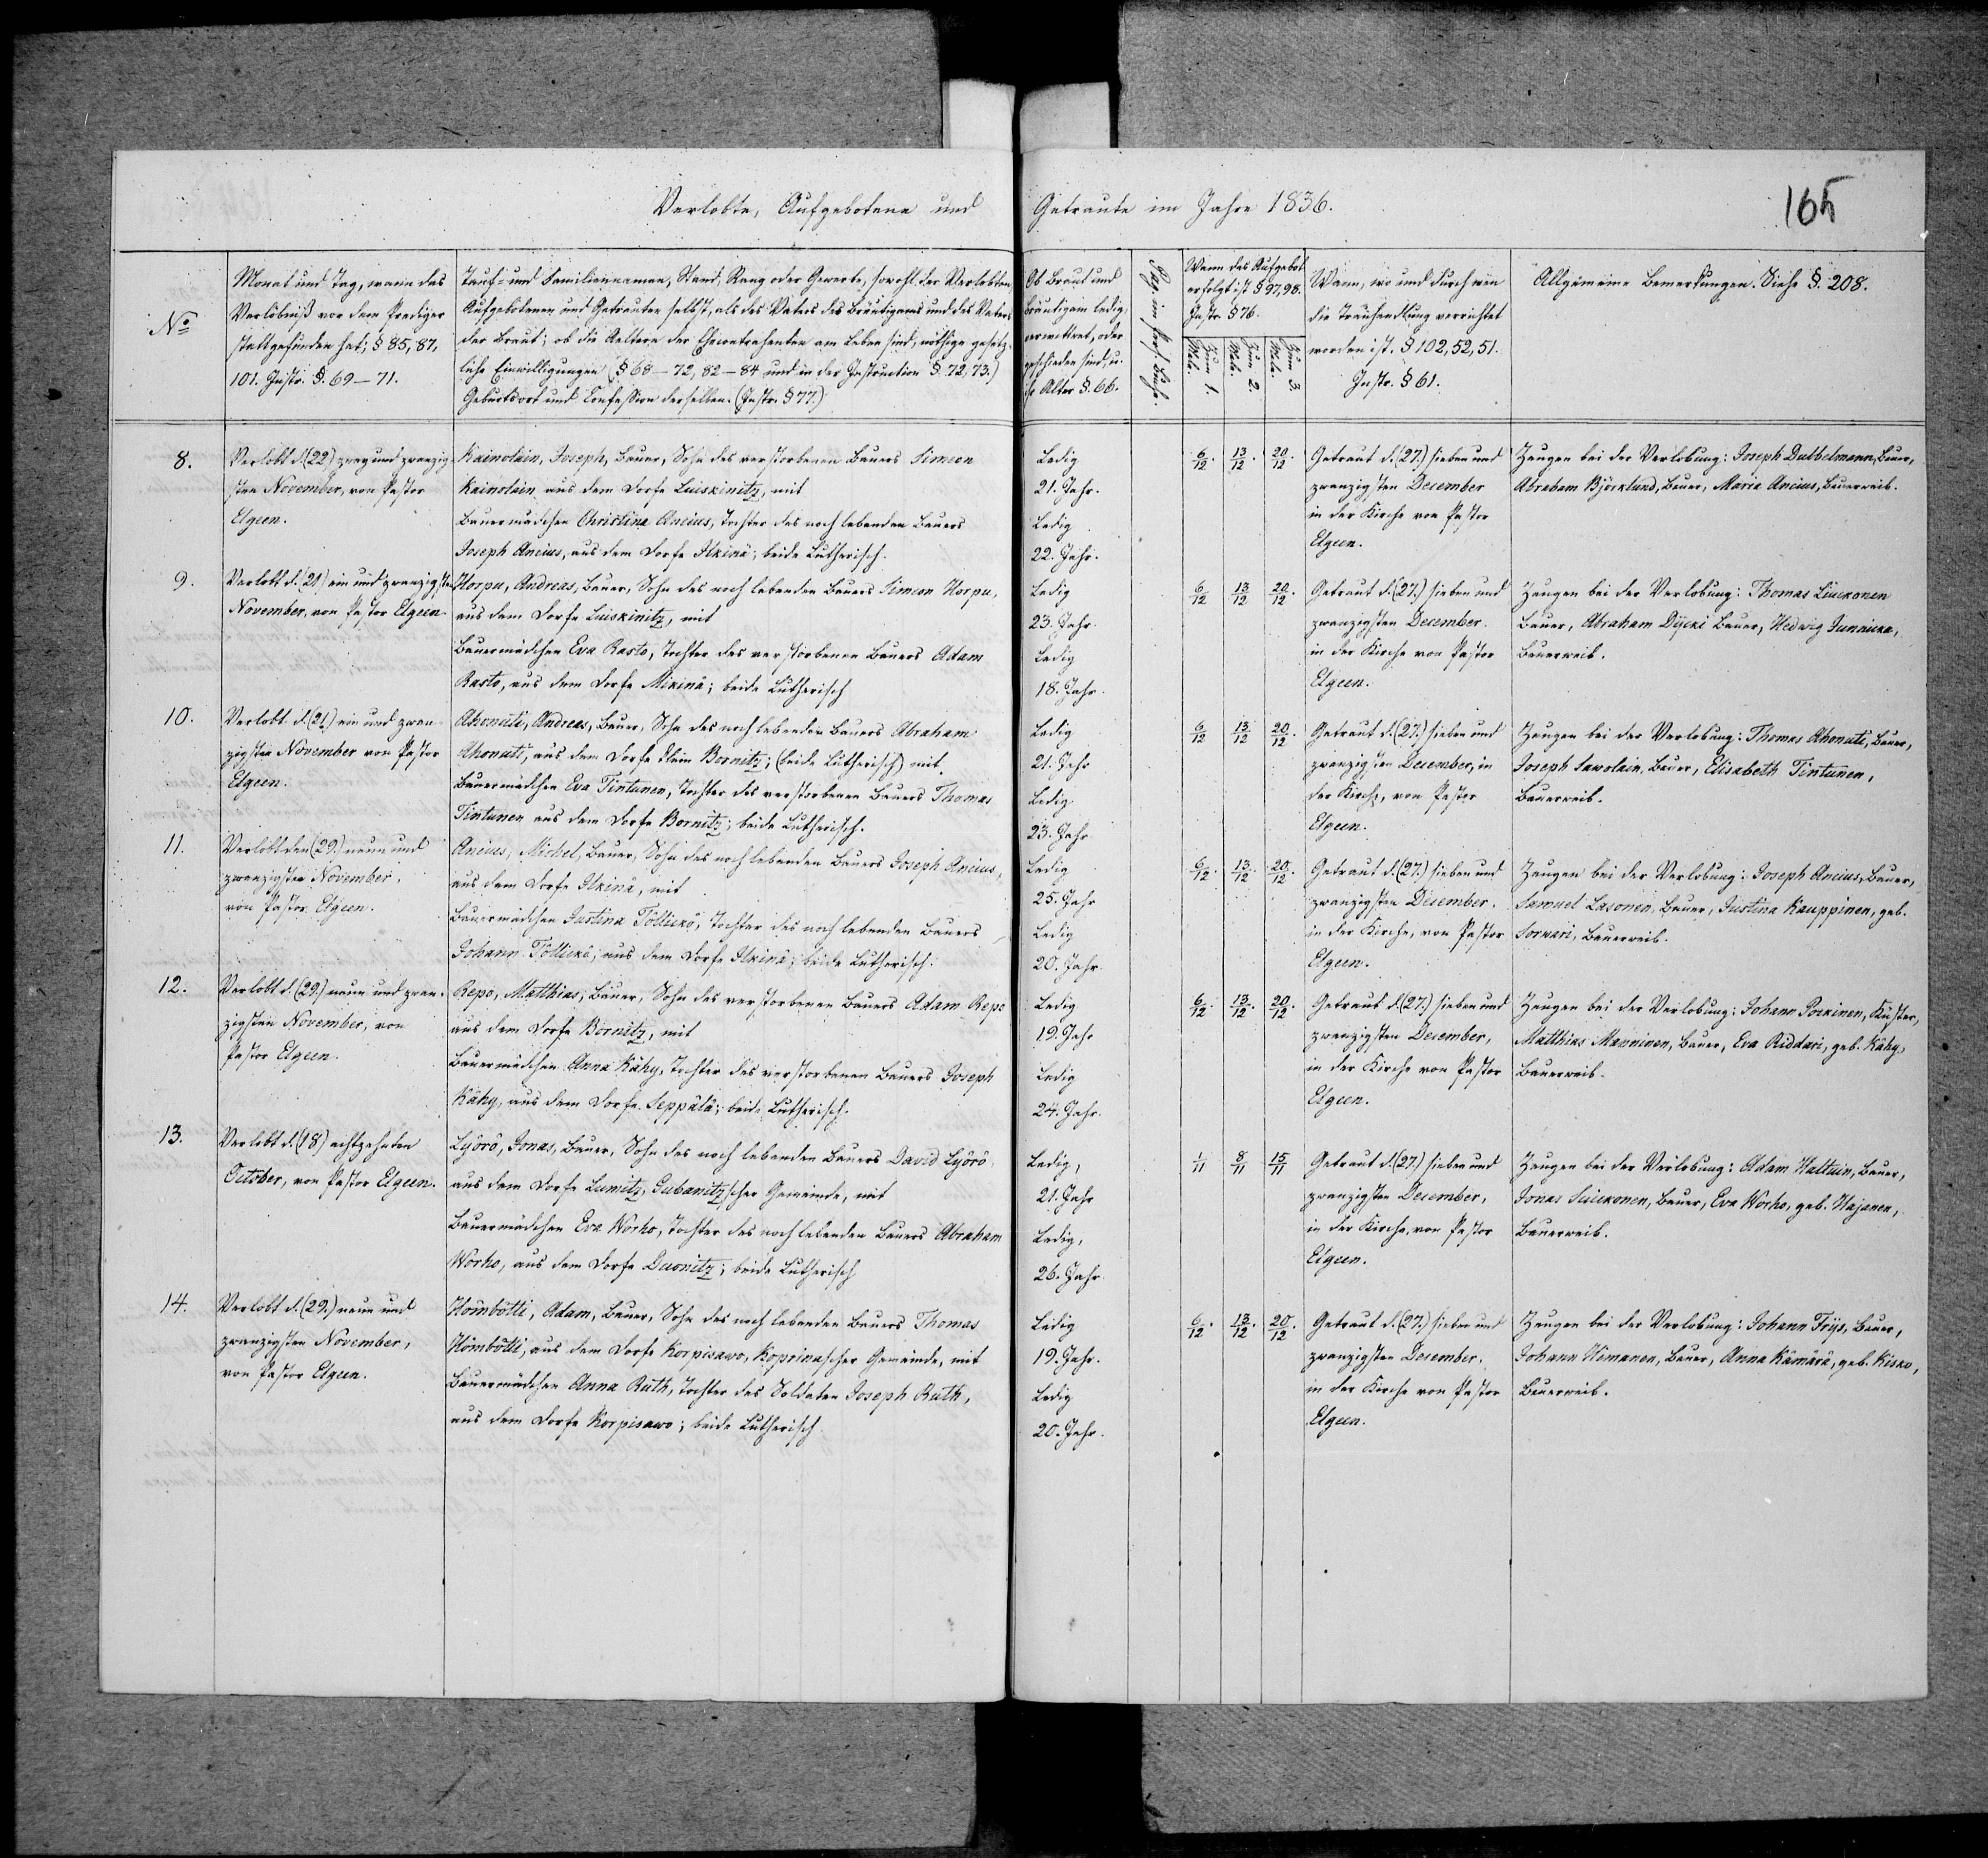 Verlobte, Aufgebotene und Getraute im Jahre 1836.
165
No
Monat und Tag, wann das
Verlöbniß vor dem Prediger
stattgefunden hat; § 85, 87,
101. Instr. §. 69–71.
Tauf- und Familiennamen, Stand, Rang oder Gewerbe, sowohl der Verlobten,
Aufgebotenen und Getrauten selbst, als des Vaters des Bräutigams und des Vaters
der Braut; ob die Aeltern der Ehecontrahenten am Leben sind, nöthige gesetz-
liche Einwilligungen (§ 68–72, 82–84 und in der Instruction §. 72, 73.)
Geburtsort und Confession derselben. (Instr. § 77.)
Ob Braut und
Bräutigam ledig,
verwittwet, oder
geschieden sind, u.
ihr Alter §. 66.
Pag. im Pers. Buche.
Wann das Aufgebot
erfolgt ist § 97, 98.
Instr. § 76.
Zum 1. Male.
Zum 2. Male.
Zum 3. Male.
Wann, wo und durch wen
die Trauhandlung verrichtet
worden ist. § 102, 52, 51.
Instr. § 61.
Allgemeine Bemerkungen. Siehe §. 208.
8.
Verlobt d. (22.) zwey und zwanzig-
sten November, von Pastor
Elgeen.
Kainolain, Joseph, Bauer, Sohn des verstorbenen Bauers Simeon
Kainolain aus dem Dorfe Luiskinitz, mit
Bauermädchen Christina Ancius, Tochter des noch lebenden Bauers
Joseph Ancius, aus dem Dorfe Ilkinä; beide Lutherisch.
Ledig
21. Jahr.
Ledig
22. Jahr.
6/12. 13/12. 20/12.
Getraut d. (27.) sieben und
zwanzigsten December
in der Kirche von Pastor
Elgeen.
Zeugen bei der Verlobung: Joseph Dubbelmann, Bauer,
Abraham Björklund, Bauer, Maria Ancius, Bauerweib.
9.
Verlobt d. (21.) ein und zwanzigsten
November, von Pastor Elgeen.
Horpu, Andreas, Bauer, Sohn des noch lebenden Bauers Simeon Horpu,
aus dem Dorfe Luiskinitz, mit
Bauermädchen Eva Rasto, Tochter des verstorbenen Bauers Adam
Rasto, aus dem Dorfe Mikinä; beide Lutherisch
Ledig
23. Jahr.
Ledig
18. Jahr.
6/12 13/12 20/12.
Getraut d. (27.) sieben und
zwanzigsten December.
in der Kirche von Pastor
Elgeen.
Zeugen bei der Verlobung: Thomas Liuckonen
Bauer, Abraham Dÿcki Bauer, Hedwig Junnicka,
Bauerweib.
10.
Verlobt d. (21.) ein und zwan-
zigsten November von Pastor
Elgeen.
Ahonuti, Andreas, Bauer, Sohn des noch lebenden Bauers Abraham
Ahonuti, aus dem Dorfe Klein Bornitz; (beide Lutherisch) mit
Bauermädchen Eva Tintunen, Tochter des verstorbenen Bauers Thomas
Tintunen aus dem Dorfe Bornitz; beide Lutherisch.
Ledig
21. Jahr
Ledig
23. Jahr
6/12 13/12 20/12.
Getraut d. (27.) sieben und
zwanzigsten December, in
der Kirche, von Pastor
Elgeen.
Zeugen bei der Verlobung: Thomas Ahonuti, Bauer,
Joseph Sawolain, Bauer, Elisabeth Tintunen,
Bauerweib.
11.
Verlobt den (29.) neun und
zwanzigsten November,
von Pastor Elgeen.
Ancius, Michel, Bauer, Sohn des noch lebenden Bauers Joseph Ancius,
aus dem Dorfe Ilkinä, mit
Bauermädchen Justina Töllickö, Tochter des noch lebenden Bauers
Johann Töllickö; aus dem Dorfe Ilkinä; beide Lutherisch.
Ledig
25. Jahr
Ledig
20. Jahr.
6/12. 13/12. 20/12.
Getraut d. (27.) sieben und
zwanzigsten December.
in der Kirche, von Pastor
Elgeen.
Zeugen bei der Verlobung: Joseph Ancius, Bauer,
Samuel Lasonen, Bauer, Justina Kauppinen, geb.
Sorvari, Bauerweib.
12.
Verlobt d. (29.) neun und zwan-
zigsten November, von
Pastor Elgeen.
Repo, Matthias, Bauer, Sohn des verstorbenen Bauers Adam Repo
aus dem Dorfe Bornitz, mit
Bauermädchen Anna Kähy, Tochter des verstorbenen Bauers Joseph
Kähy, aus dem Dorfe Seppälä; beide Lutherisch.
Ledig
19. Jahr
Ledig
24. Jahr.
6/12. 13/12. 20/12.
Getraut d. (27.) sieben und
zwanzigsten December,
in der Kirche von Pastor
Elgeen.
Zeugen bei der Verlobung: Johann Poikinen, Küster,
Matthias Manninen, Bauer, Eva Riddari, geb. Kähy,
Bauerweib.
13.
Verlobt d. (18.) achtzehnten
October, von Pastor Elgeen.
Lÿörö, Jonas, Bauer, Sohn des noch lebenden Bauers David Lÿörö
aus dem Dorfe Lumitz, Gubanitzscher Gemeinde, mit
Bauermädchen Eva Worho, Tochter des noch lebenden Bauers Abraham
Worho, aus dem Dorfe Duonitz; beide Lutherisch
Ledig,
21. Jahr
Ledig,
26. Jahr
1/11 8/11 15/11
Getraut d. (27.) sieben und
zwanzigsten December,
in der Kirche, von Pastor
Elgeen.
Zeugen bei der Verlobung: Adam Waltain, Bauer,
Jonas Suickonen, Bauer, Eva Worho, geb. Hajanen,
Bauerweib.
14.
Verlobt d. (29.) neun und
zwanzigsten November,
von Pastor Elgeen.
Hömbötti, Adam, Bauer, Sohn des noch lebenden Bauers Thomas
Hömbötti, aus dem Dorfe Korpisawo, Koprinascher Gemeinde, mit
Bauermädchen Anna Ruth, Tochter des Soldaten Joseph Ruth,
aus dem Dorfe Korpisawo; beide Lutherisch
Ledig
19. Jahr.
Ledig
20. Jahr.
6/12. 13/12. 20/12.
Getraut d. (27.) sieben und
zwanzigsten December.
in der Kirche von Pastor
Elgeen.
Zeugen bei der Verlobung: Johann Frÿs, Bauer,
Johann Himanen, Bauer, Anna Kämärä, geb. Kisko,
Bauerweib.